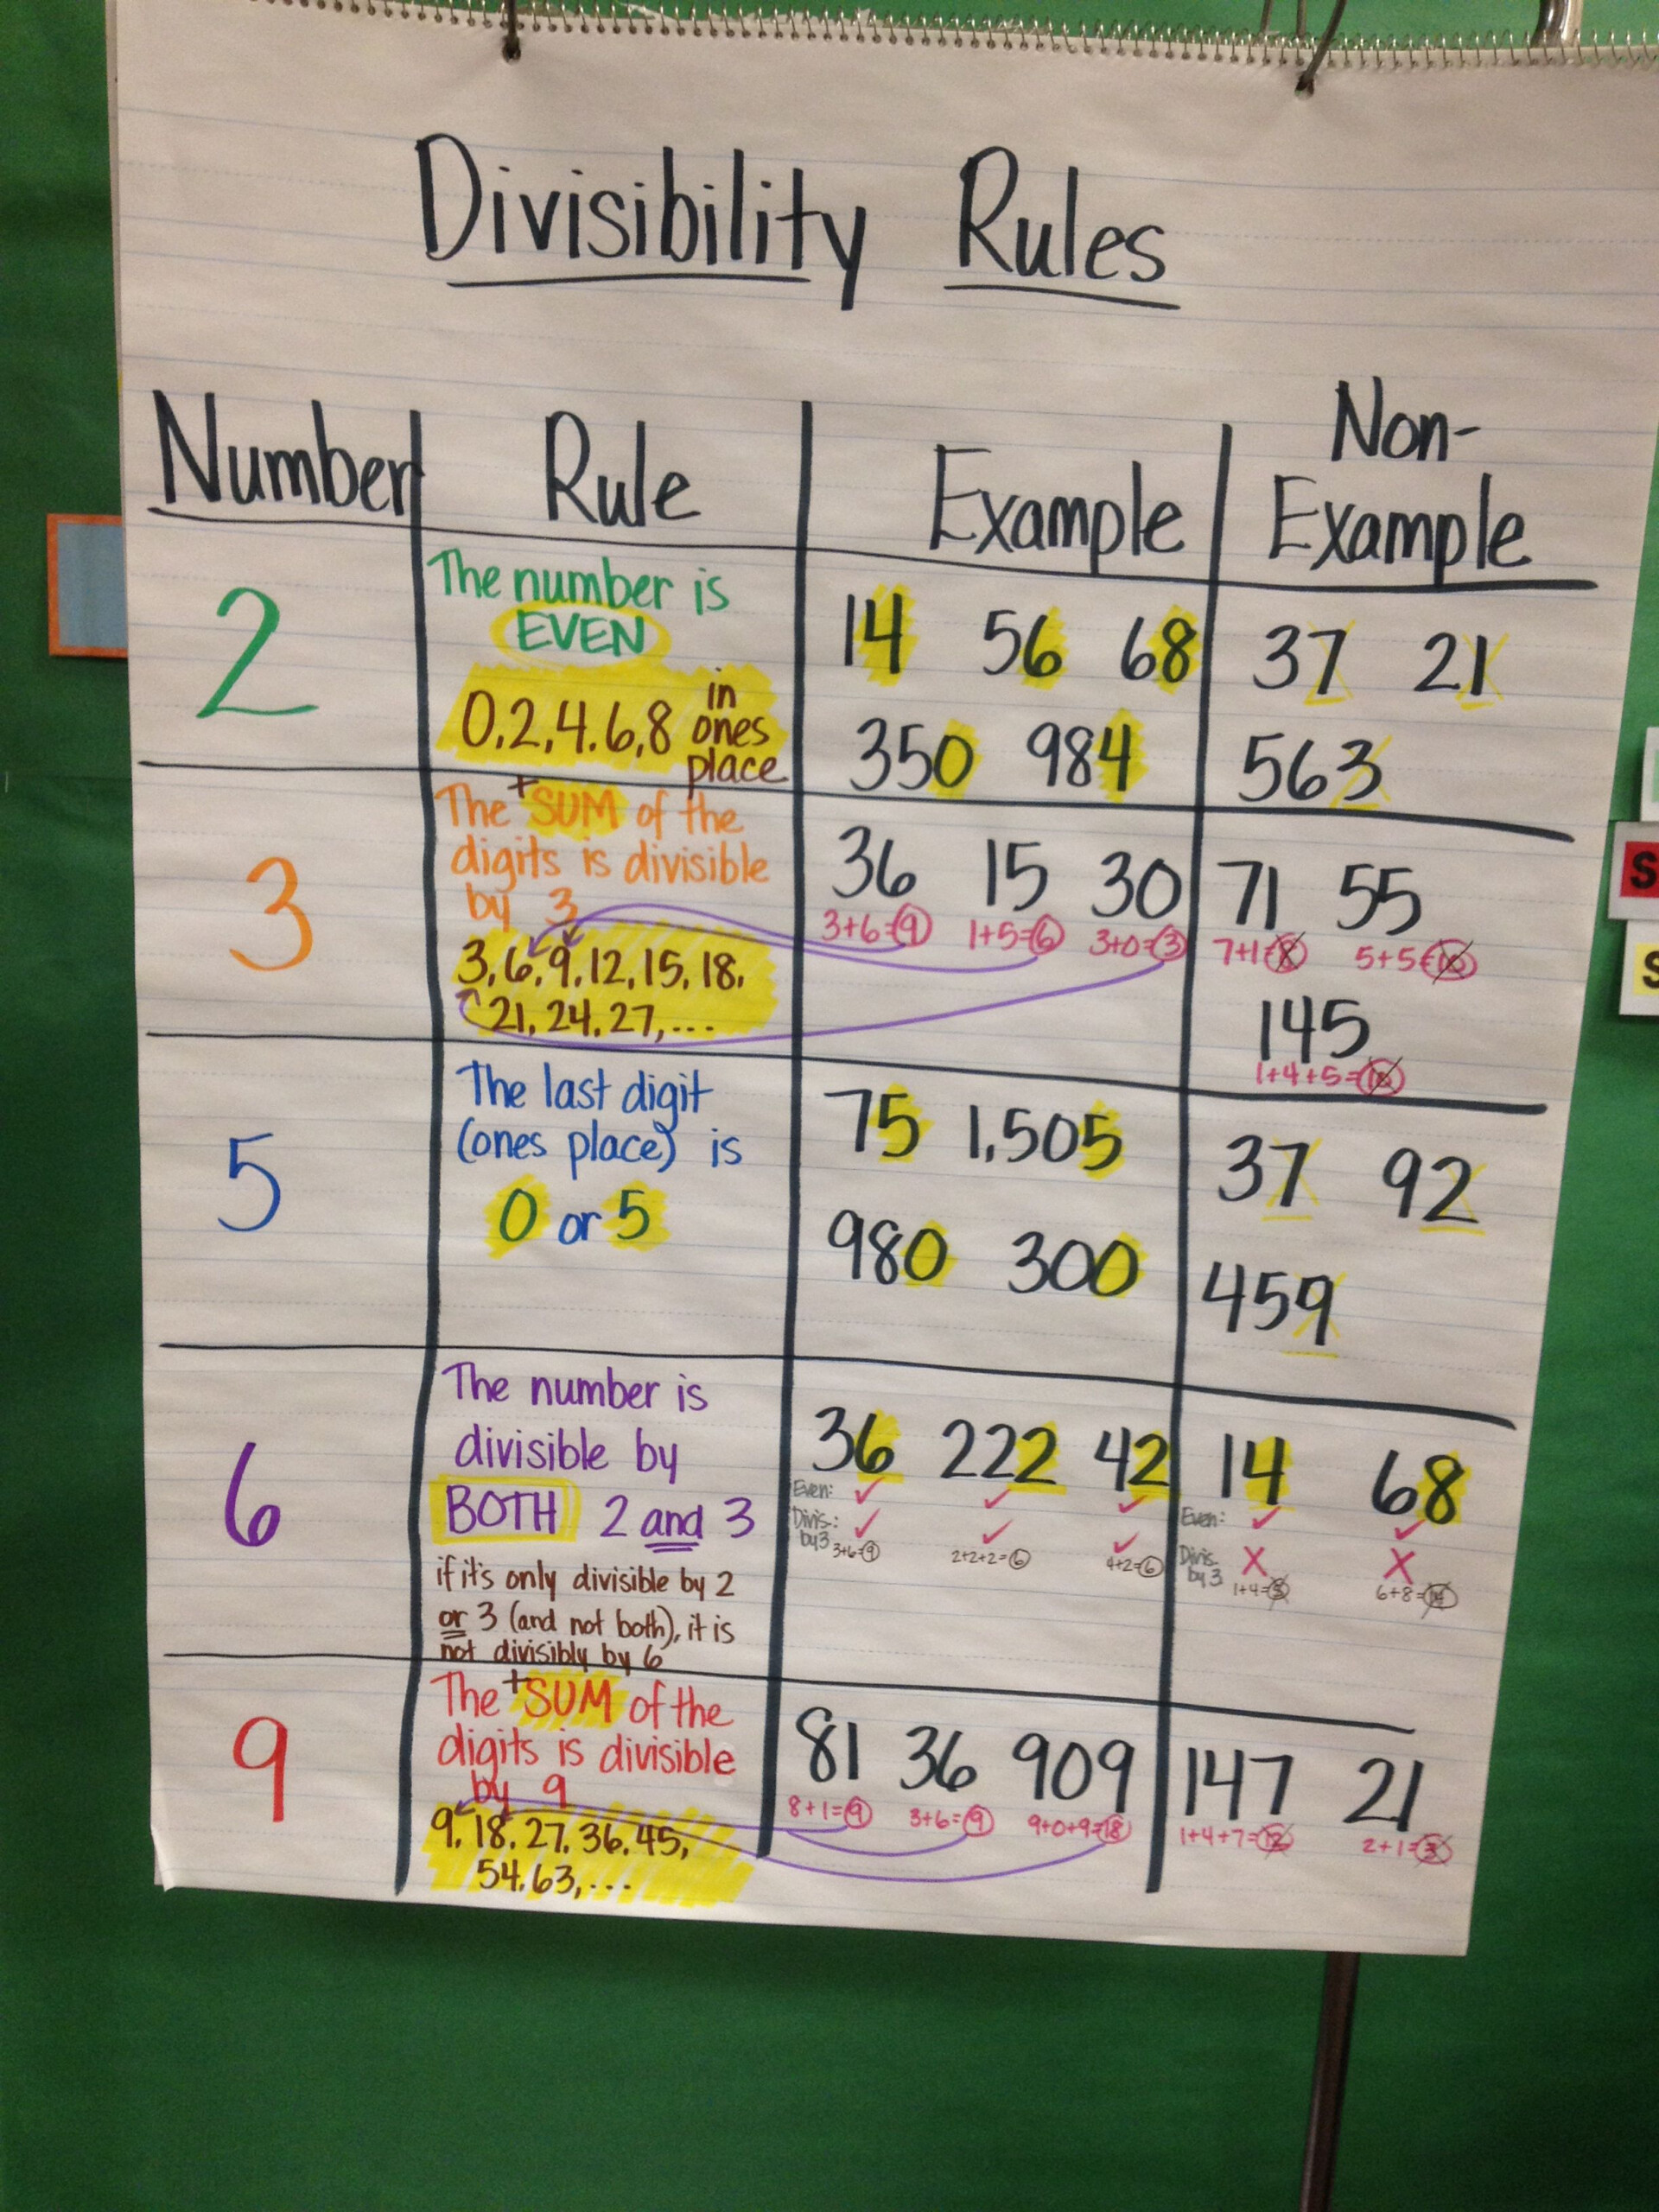 Divisibility Rules
Number
Rule
Example
Non-
Example
2
The number is
EVEN
0,2,4,6,8 in
ones
place
14 56 68
350 984
37 21
563
3
The +SUM of the
digits is divisible
by 3
3,6,9,12,15,18,
21,24,27,...
36 15 30
3+6=9 1+5=6 3+0=3
71 55
7+1=8 5+5=10
145
1+4+5=10
5
The last digit
(ones place) is
0 or 5
75 1,505
980 300
37 92
459
6
The number is
divisible by
BOTH 2 and 3
if it's only divisible by 2
or 3 (and not both), it is
not divisibly by 6
36 222 42
Even: ✓ ✓ ✓
Divis.: ✓ ✓ ✓
by 3 3+6=9 2+2+2=6 4+2=6
14 68
Even: ✓ ✓
Divis. X X
by 3 1+4=5 6+8=14
9
The +SUM of the
digits is divisible
by 9
9,18,27,36,45,
54,63,...
81 36 909
8+1=9 3+6=9 9+0+9=18
147 21
1+4+7=12 2+1=3
S
S